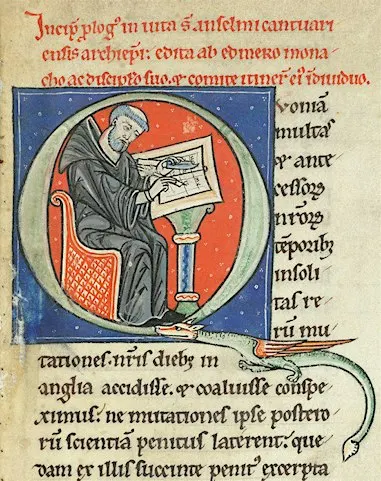 Incip̄ plog᷒ in vita s̄ anselmi cantuari
ensis archiep̄i: edita ab edmero mona
cho ac discip̄lo suo, & comite itineꝝ ei᷒ īdiuiduo.
Qvoniā
multas
& ante
cessorꝝ
nr̄orꝝ
tēporibꝫ
insoli
tas re
rū mu
tationes. nr̄is diebꝫ in
anglia accidisse. & coaluisse conspe
ximus: ne mutationes ipse postero
rū scientiā penitus laterent: que
dam ex illis succinte penit᷒ excerpta